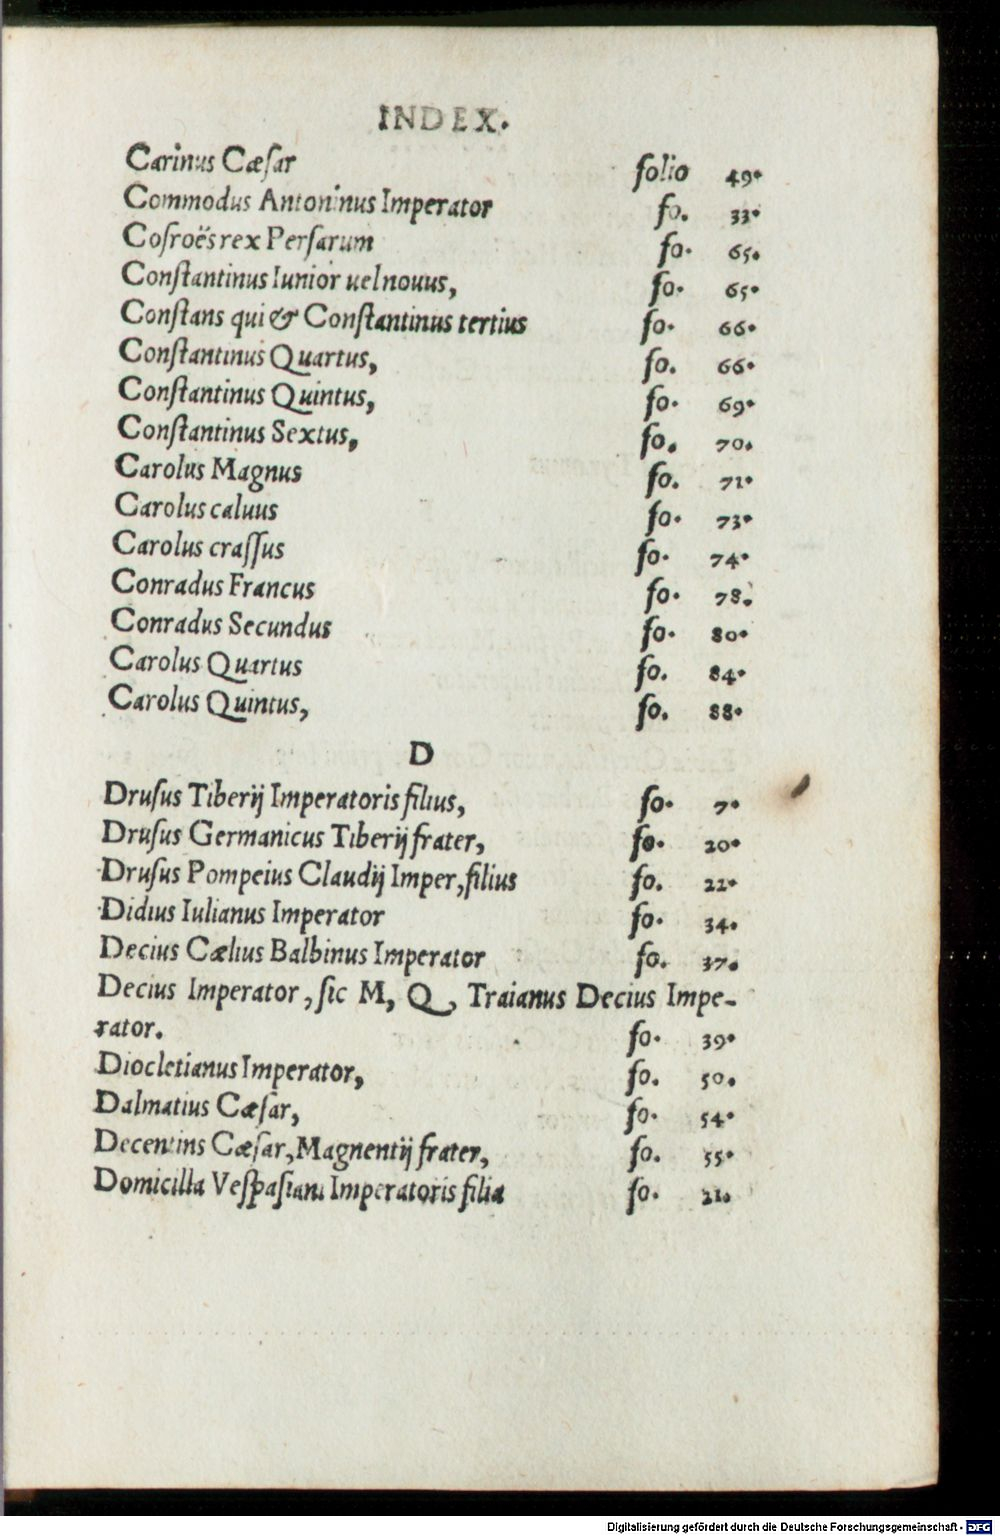 INDEX.
Carinus Cæſar folio 49.
Commodus Antoninus Imperator fo. 33.
Coſroës rex Perſarum fo. 65.
Conſtantinus Iunior uel nouus, fo. 65.
Conſtans qui & Conſtantinus tertius fo. 66.
Conſtantinus Quartus, fo. 66.
Conſtantinus Quintus, fo. 69.
Conſtantinus Sextus, fo. 70.
Carolus Magnus fo. 71.
Carolus caluus fo. 73.
Carolus craſſus fo. 74.
Conradus Francus fo. 78.
Conradus Secundus fo. 80.
Carolus Quartus fo. 84.
Carolus Quintus, fo. 88.
D
Druſus Tiberij Imperatoris filius, fo. 7.
Druſus Germanicus Tiberij frater, fo. 20.
Druſus Pompeius Claudij Imper, filius fo. 22.
Didius Iulianus Imperator fo. 34.
Decius Cælius Balbinus Imperator fo. 37.
Decius Imperator, ſic M, Q, Traianus Decius Impe-
rator. fo. 39.
Diocletianus Imperator, fo. 50.
Dalmatius Cæſar, fo. 54.
Decentins Cæſar, Magnentij frater, fo. 55.
Domicilla Veſpaſiani Imperatoris filia fo. 21.
Digitalisierung gefördert durch die Deutsche Forschungsgemeinschaft - DFG